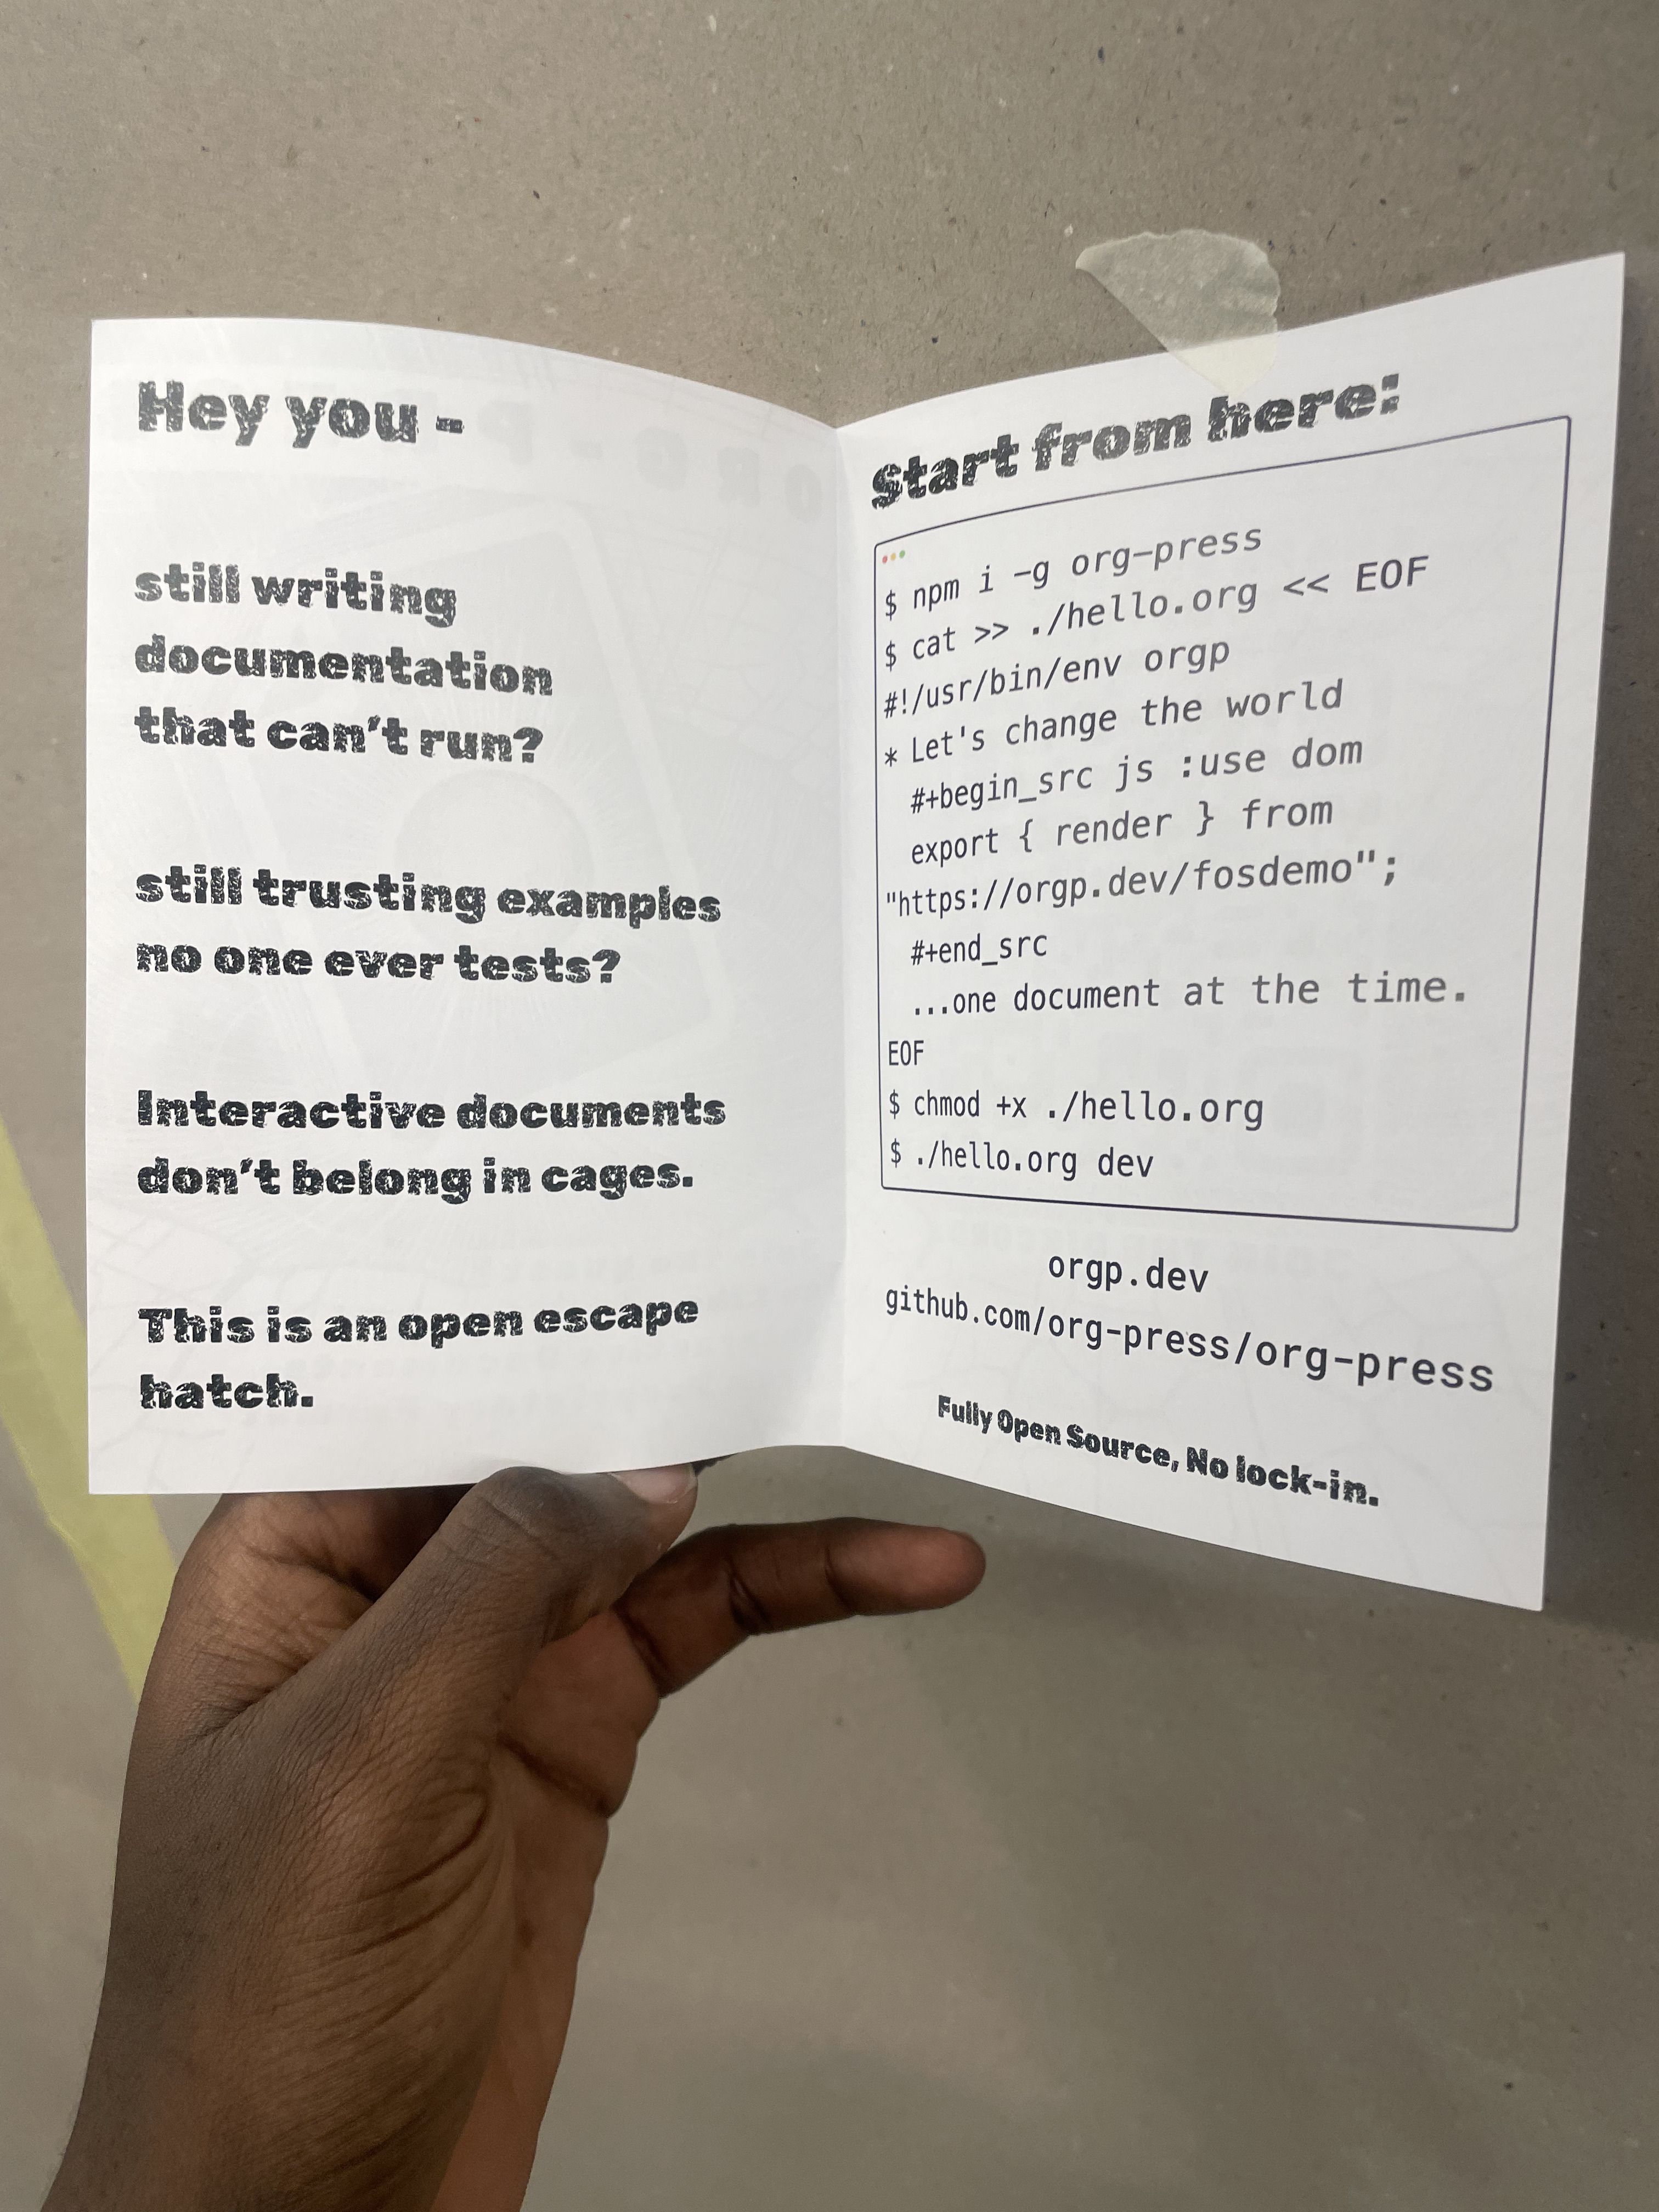 Hey you -
still writing
documentation
that can't run?
still trusting examples
no one ever tests?
Interactive documents
don't belong in cages.
This is an open escape
hatch.
Start from here:
$ npm i -g org-press
$ cat >> ./hello.org << EOF
#!/usr/bin/env orgp
* Let's change the world
#+begin_src js :use dom
export { render } from
"https://orgp.dev/fosdemo";
#+end_src
...one document at the time.
EOF
$ chmod +x ./hello.org
$ ./hello.org dev
orgp.dev
github.com/org-press/org-press
Fully Open Source, No lock-in.